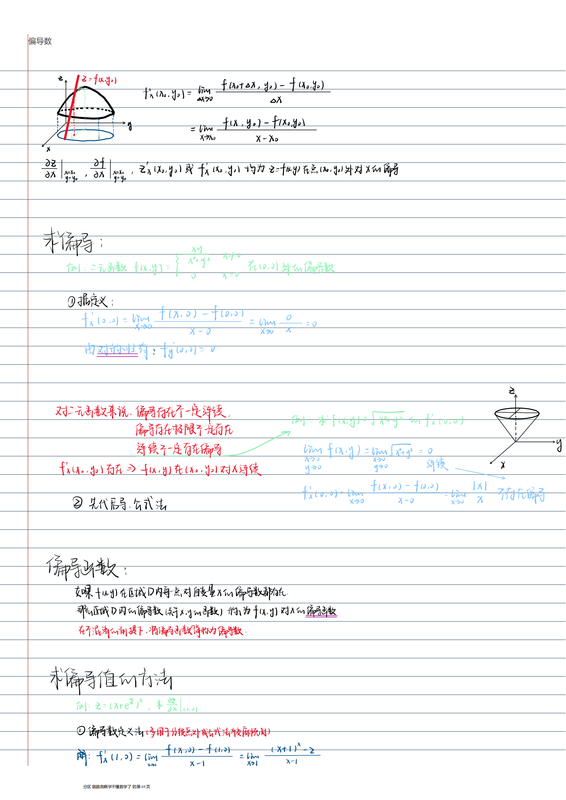 偏导数
z
z=f(x,y₀)
y
x
f'ₓ(x₀,y₀) = lim Δx→0 [f(x₀+Δx, y₀) - f(x₀,y₀)] / Δx
= lim x→x₀ [f(x,y₀) - f(x₀,y₀)] / (x-x₀)
∂z/∂x |x=x₀ y=y₀ , ∂f/∂x |x=x₀ y=y₀ , z'ₓ(x₀,y₀) 或 f'ₓ(x₀,y₀) 均为 z=f(x,y) 在点(x₀,y₀)处对x的偏导
求偏导:
例1. 二元函数 f(x,y) = { 0 在(0,0)处的偏导数
①据定义:
f'ₓ(0,0) = lim x→0 [f(x,0) - f(0,0)] / (x-0) = lim x→0 0/x = 0
由对称性 : f'y(0,0) = 0
对二元函数来说, 偏导存在不一定连续,
偏导存在极限不一定存在
连续不一定存在偏导
f'ₓ(x₀,y₀)存在 ⇒ f(x,y)在(x₀,y₀)对x连续
例. 求 f(x,y)=√(x²+y²) 的 f'ₓ(0,0)
lim x→0 y→0 f(x,y) = lim x→0 y→0 √(x²+y²) = 0
连续
f'ₓ(0,0) = lim x→0 [f(x,0) - f(0,0)] / (x-0) = lim x→0 |x|/x 不存在偏导
z
y
x
② 先代后导, 公式法
偏导函数:
如果 f(x,y) 在区域D内每一点对自变量x的偏导数都存在
那么区域D内的偏导数 (x,y的函数) 称为 f(x,y) 对x的偏导函数
在不混淆的前提下, 将偏导函数简称为偏导数
求偏导值的方法
例:
①偏导数定义法
解: f'ₓ(1,0) = lim x→1 [f(x,0) - f(1,0)] / (x-1) = lim x→1